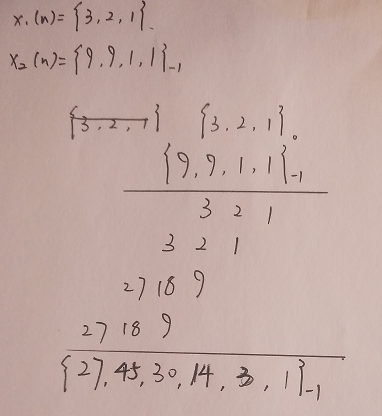 x₁(n)={3,2,1}.
x₂(n)={9,9,1,1}₋₁
{3,2,1} {3,2,1}₀
{9,9,1,1}₋₁
3 2 1
3 2 1
27 18 9
27 18 9
{27,45,30,14,3,1}₋₁